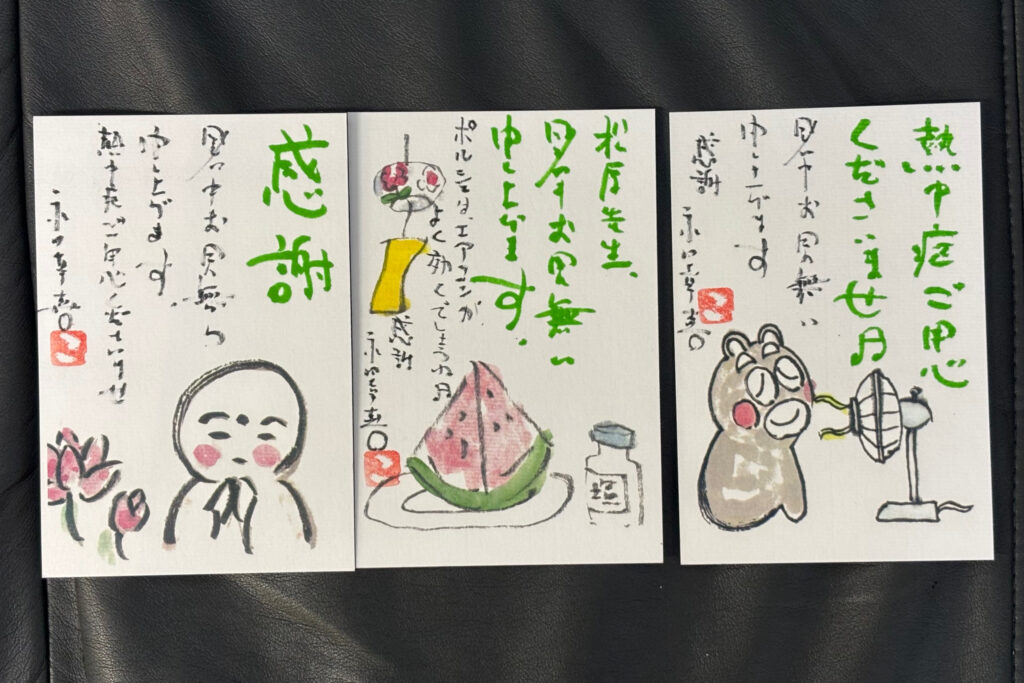 感謝
暑中お見舞い
申し上げます
熱中症ご用心くださいませ
松原先生、
暑中お見舞い
申し上げます。
ポルシェは、エアコンが
よく効くでしょうね
感謝
塩
熱中症ご用心
くださいませ
暑中お見舞い
申し上げます
感謝